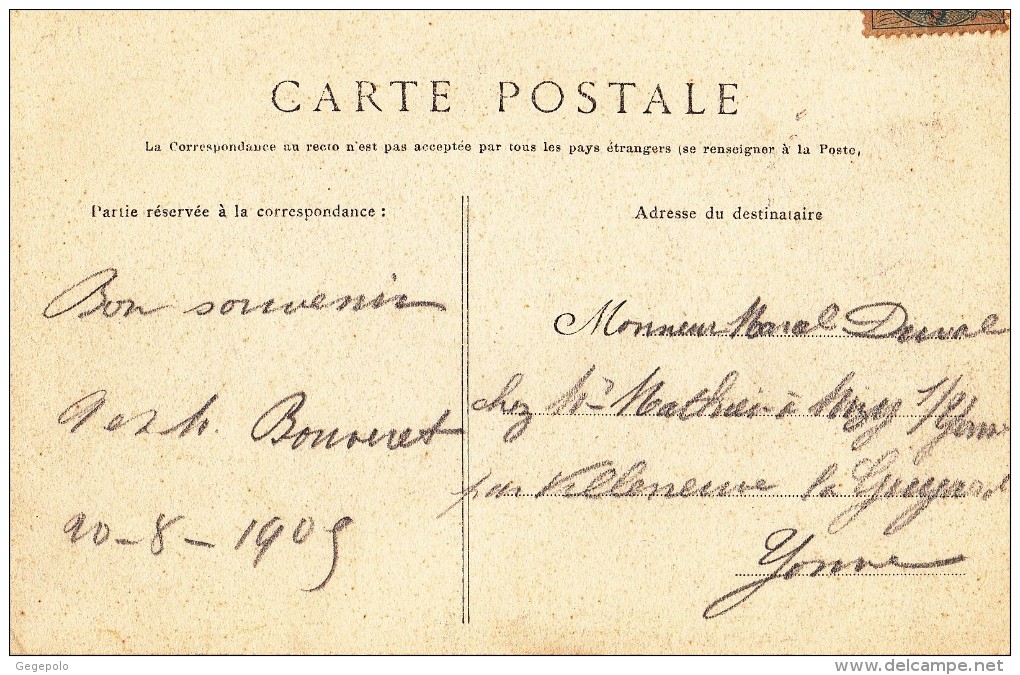 CARTE POSTALE
La Correspondance au recto n'est pas acceptée par tous les pays étrangers (se renseigner à la Poste,
Partie réservée à la correspondance :
Adresse du destinataire
Bon souvenir
Bouveret
20-8-1905
Monsieur Marcel Duval
chez Mr Mathieu à Misy s/Yonne
par Villeneuve la Guyard
Yonne
Gegepolo
www.delcampe.net